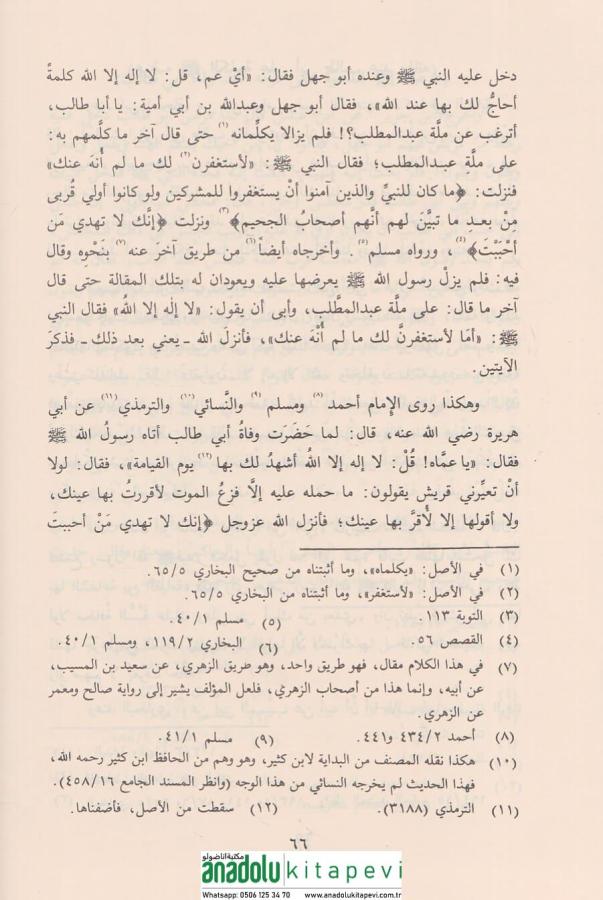 دخل عليه النبي ﷺ وعنده أبو جهل فقال: «أيْ عم، قل: لا إله إلا الله كلمةً
أحاجُّ لك بها عند الله»، فقال أبو جهل وعبدالله بن أبي أمية: يا أبا طالب،
أترغب عن ملَّة عبدالمطلب؟! فلم يزالا يكلِّمانه(١) حتى قال آخر ما كلَّمهم به:
على ملَّةِ عبدالمطلب؛ فقال النبي ﷺ: «لأستغفرن(٢) لك ما لم أُنهَ عنك»
فنزلت: ﴿ما كان للنبيِّ والذين آمنوا أنْ يستغفروا للمشركين ولو كانوا أولي قُربى
مِنْ بعدِ ما تبيَّنَ لهم أنَّهم أصحابُ الجحيم﴾(٣) ونزلت ﴿إنَّك لا تهدي مَن
أحْبَبْتَ﴾(٤)، ورواه مسلم(٥). وأخرجاه أيضاً(٦) من طريق آخرَ عنه(٧) بنَحْوِه وقال
فيه: فلم يزلْ رسول الله ﷺ يعرضها عليه ويعودان له بتلك المقالة حتى قال
آخر ما قال: على ملَّة عبدالمطَّلب، وأبى أن يقول: «لا إله إلا اللهُ» فقال النبي
ﷺ: «أمَا لأستغفرنَّ لك ما لم أُنْهَ عنك»، فأنزلَ الله ـ يعني بعد ذلك ـ فذكرَ
الآيتين.
وهكذا روى الإمام أحمد(٨) ومسلم(٩) والنَّسائي(١٠) والترمذي(١١) عن أبي
هريرة رضي الله عنه، قال: لما حضَرَت وفاةُ أبي طالب أتاه رسولُ الله ﷺ
فقال: «يا عمَّاه! قُلْ: لا إله إلا اللهُ أشهدُ لك بها(١٢) يوم القيامة»، فقال: لولا
أنْ تعيِّرني قريش يقولون: ما حمله عليه إلَّا فزعُ الموت لأقررتُ بها عينك،
ولا أقولها إلا لأُقرَّ بها عينك؛ فأنزل الله عزوجل ﴿إنك لا تهدي مَنْ أحببتَ
(١) في الأصل: «يكلماه»، وما أثبتناه من صحيح البخاري ٦٥/٥.
(٢) في الأصل: «لأستغفر»، وما أثبتناه من البخاري ٦٥/٥.
(٣) التوبة ١١٣. (٥) مسلم ٤٠/١.
(٤) القصص ٥٦. (٦) البخاري ١١٩/٢، ومسلم ٤٠/١.
(٧) في هذا الكلام مقال، فهو طريق واحد، وهو طريق الزهري، عن سعيد بن المسيب،
عن أبيه، وإنما هذا من أصحاب الزهري، فلعل المؤلف يشير إلى رواية صالح ومعمر
عن الزهري.
(٨) أحمد ٤٣٤/٢ و٤٤١. (٩) مسلم ٤١/١.
(١٠) هكذا نقله المصنف من البداية لابن كثير، وهو وهم من الحافظ ابن كثير رحمه الله،
فهذا الحديث لم يخرجه النسائي من هذا الوجه (وانظر المسند الجامع ٤٥٨/١٦).
(١١) الترمذي (٣١٨٨). (١٢) سقطت من الأصل، فأضفناها.
٦٦
مكتبة اناضولو
anadolu kitapevi
Whatsapp: 0506 125 34 70 www.anadolukitapevi.com.tr